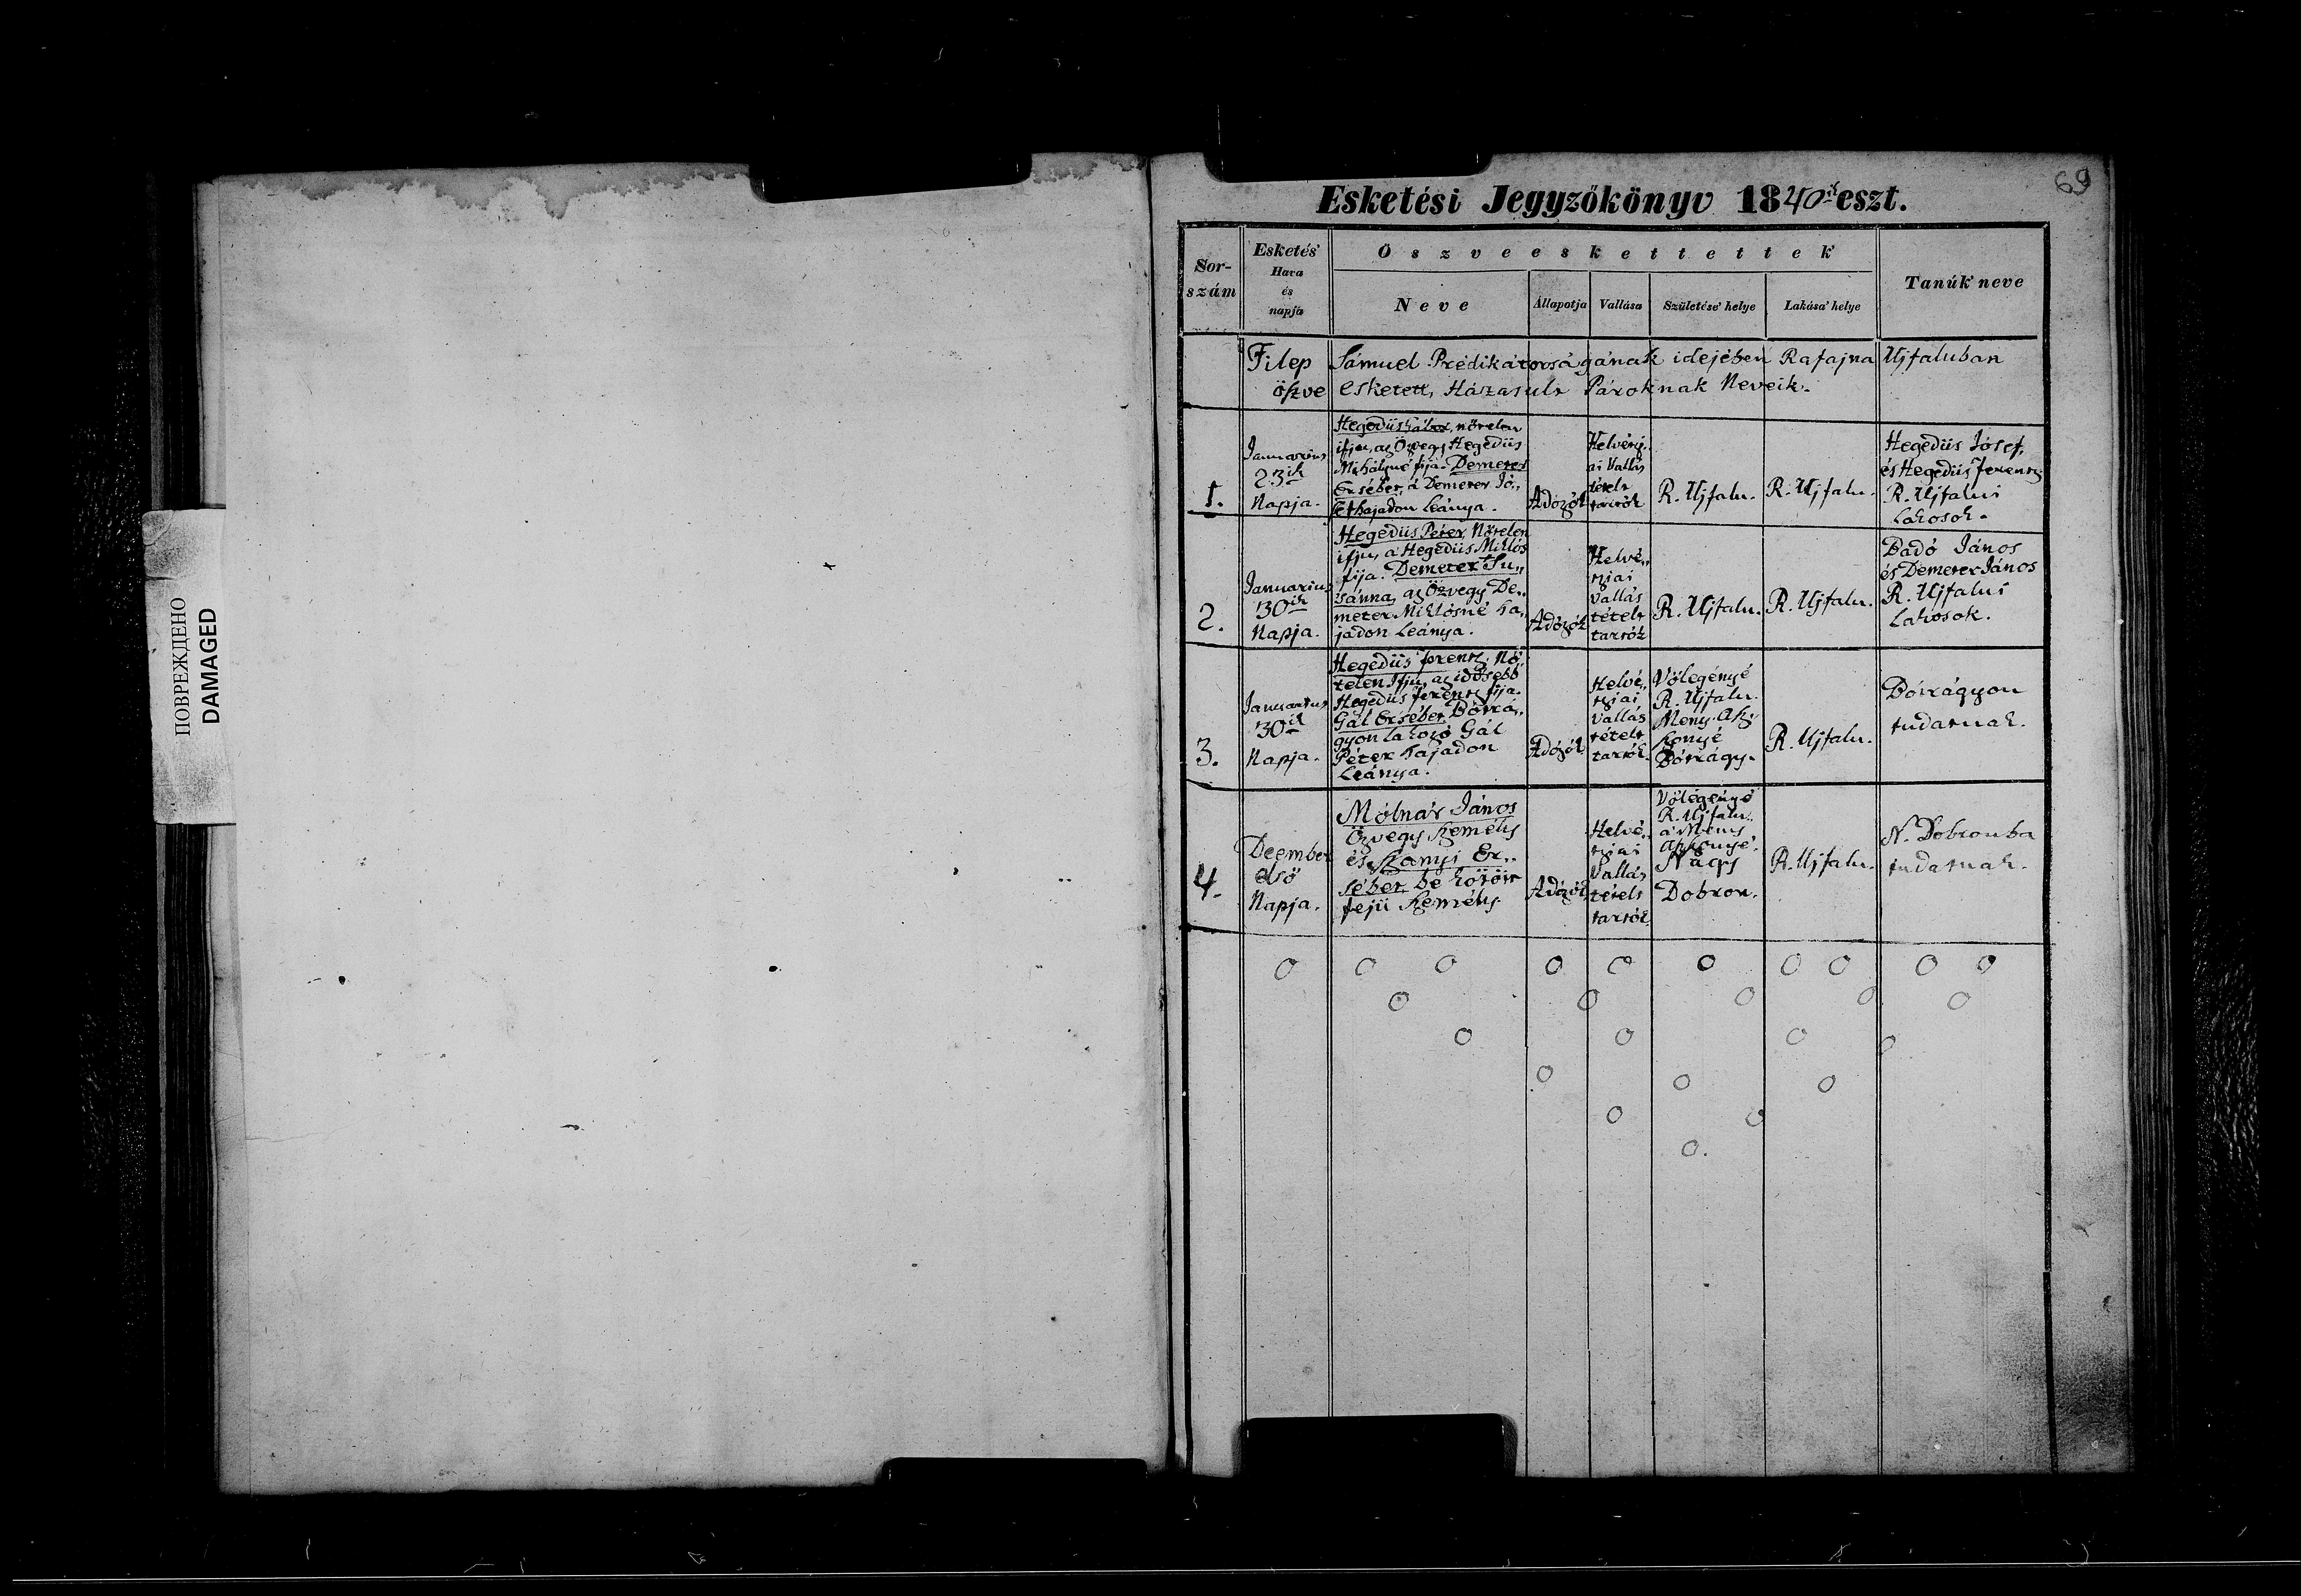 ПОВРЕЖДЕНО
DAMAGED
69
Esketési Jegyzőkönyv 1840ik eszt.
Sor-
szám
Esketés'
Hava
és
napja
Öszveeskettettek'
Neve
Állapotja
Vallása
Születése' helye
Lakása' helye
Tanúk' neve
Filep Sámuel Prédikátorságának idejében Rafajna Ujfaluban
öszve eskètett, Házasult Pároknak Neveik.
1.
Januarius
23ik
Napja.
Hegedüs nőtelen
ifju, az Özvegy Hegedüs
Mihályné fija. Demeter
Ersébet, á Demeter Jó„
sef hajadon Leánya.
Adózók
Helvétzi„
ai Vallás
tételt
tartók
R. Ujfalu.
R. Ujfalu.
Hegedüs Jósef,
és Hegedüs Ferentz
R. Ujfalui
Lakosok.
2.
Januarius
30ik
Napja.
Hegedüs Péter, Nőtelen
ifju, á Hegedüs Miklós
fija. Demeter Su„
sánna, az Özvegy De„
meter Miklósné ha„
jadon Leánya.
Adózók
Helvé„
tziai
Vallás
tételt
tartók
R. Ujfalu.
R. Ujfalu.
Badó János
és Demeter János
R. Ujfalui
Lakosok.
3.
Januarius
30ik
Napja.
Hegedüs Ferentz, Nő„
telen Ifju, az idősebb
Hegedüs Ferentz fija.
Gál Ersébet, Bótrá„
gyon Lakozó Gál
Péter hajadon
Leánya.
Adózók
Helvé„
tziai
Vallás
tételt
tartók.
Völegényé
R. Ujfalu.
Meny Asz„
szonyé
Bótrágy.
R. Ujfalu.
Bótrágyon
tudatnak.
4.
December
első
Napja.
Mólnár János
Özvegy Személy
és Szanyi Er„
sébet be kötött
fejü Személy.
Adózók
Helvé„
tziai
Vallás
tételt
tartók.
Völegényé
R. Ujfalu.
a Meny
Aszszonyé.
Nagy
Dobron.
R. Ujfalu.
N. Dobronba
tudatnak.
O O O O O O O O O O
O O O O O
O O O O
O O O
O O
O.